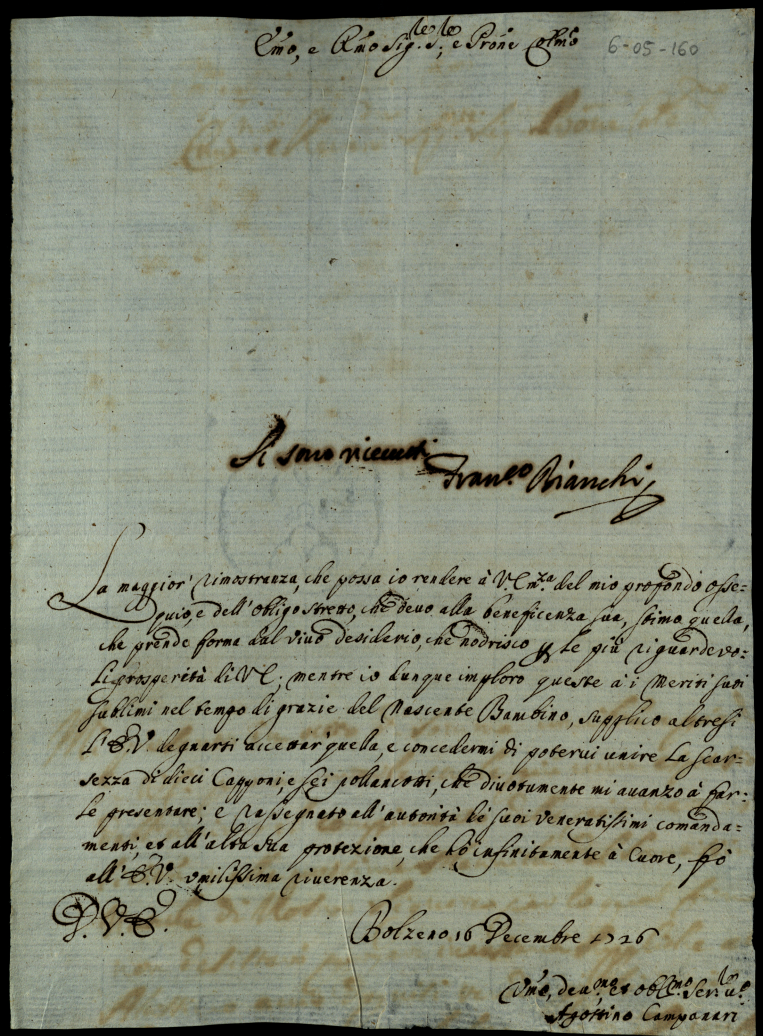 Emo, e Rmo Sig.re S.re, e Prone Colmo
6-05-160
Si sono riceuuti
Fran.co Bianchi
La maggior' rimostranza, che possa io rendere à V. Emza. del mio profondo osse-
quio, e dell'obligo stretto, che deuo alla beneficenza sua, stimo quella,
che prende forma dal viuo desiderio, che nodrisco p le più riguardevo-
li prosperità di V.E.; mentre io dunque imploro queste à i Meriti suoi
sublimi nel tempo di grazie del Nascente Bambino, supplico altresi
l'E.V. degnarsi accettar' quella, e concedermi di poterui unire La scar-
sezza di dieci Capponi, e sei pollancotti, che diuotamente mi auanzo à far-
le presentare; e rassegnato all'autorità de suoi veneratissimi comanda-
menti, et all'alta sua protezione, che hò infinitamente à Cuore, fò
all'E.V. vmilissima riuerenza.
D. V. E.
Bolzeno 16 Decembre 1726
Vmo, deu.mo et obl.mo Ser.re v.o
Agostino Campanari